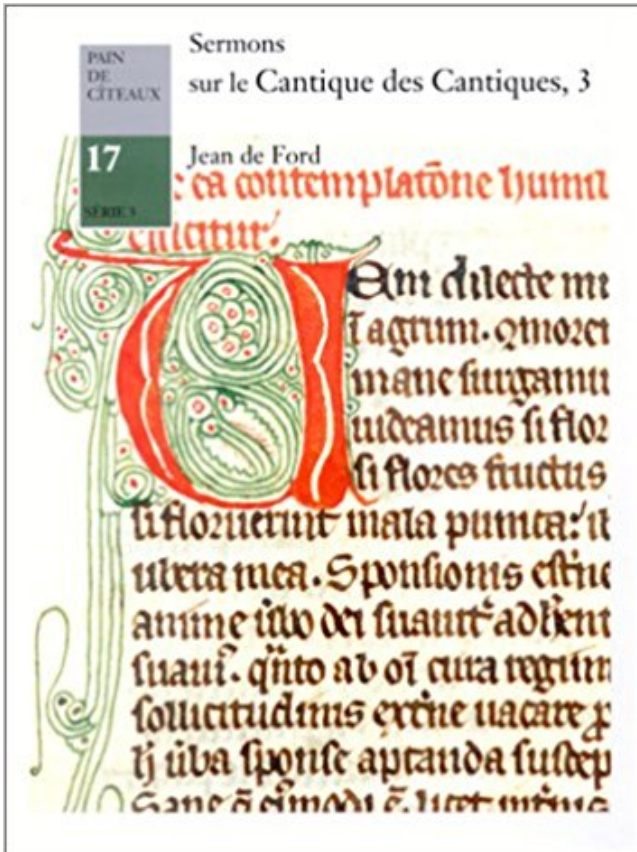 PAIN
DE
CÎTEAUX
17
SÉRIE 3
Sermons
sur le Cantique des Cantiques, 3
Jean de Ford
ea contemplatōne humil
elicitur.
Veni dilecte mi
ī agrum. 9morem
mane surgamu
uideamus si flor
si flores fructus
si floruerint mala punica: ib
ubera mea. Sponsionis est
anime uerbo dei
suaui. ab oī cura regum
sollicitudinis uacare p
uba sponse aptanda suscep
Sane licet